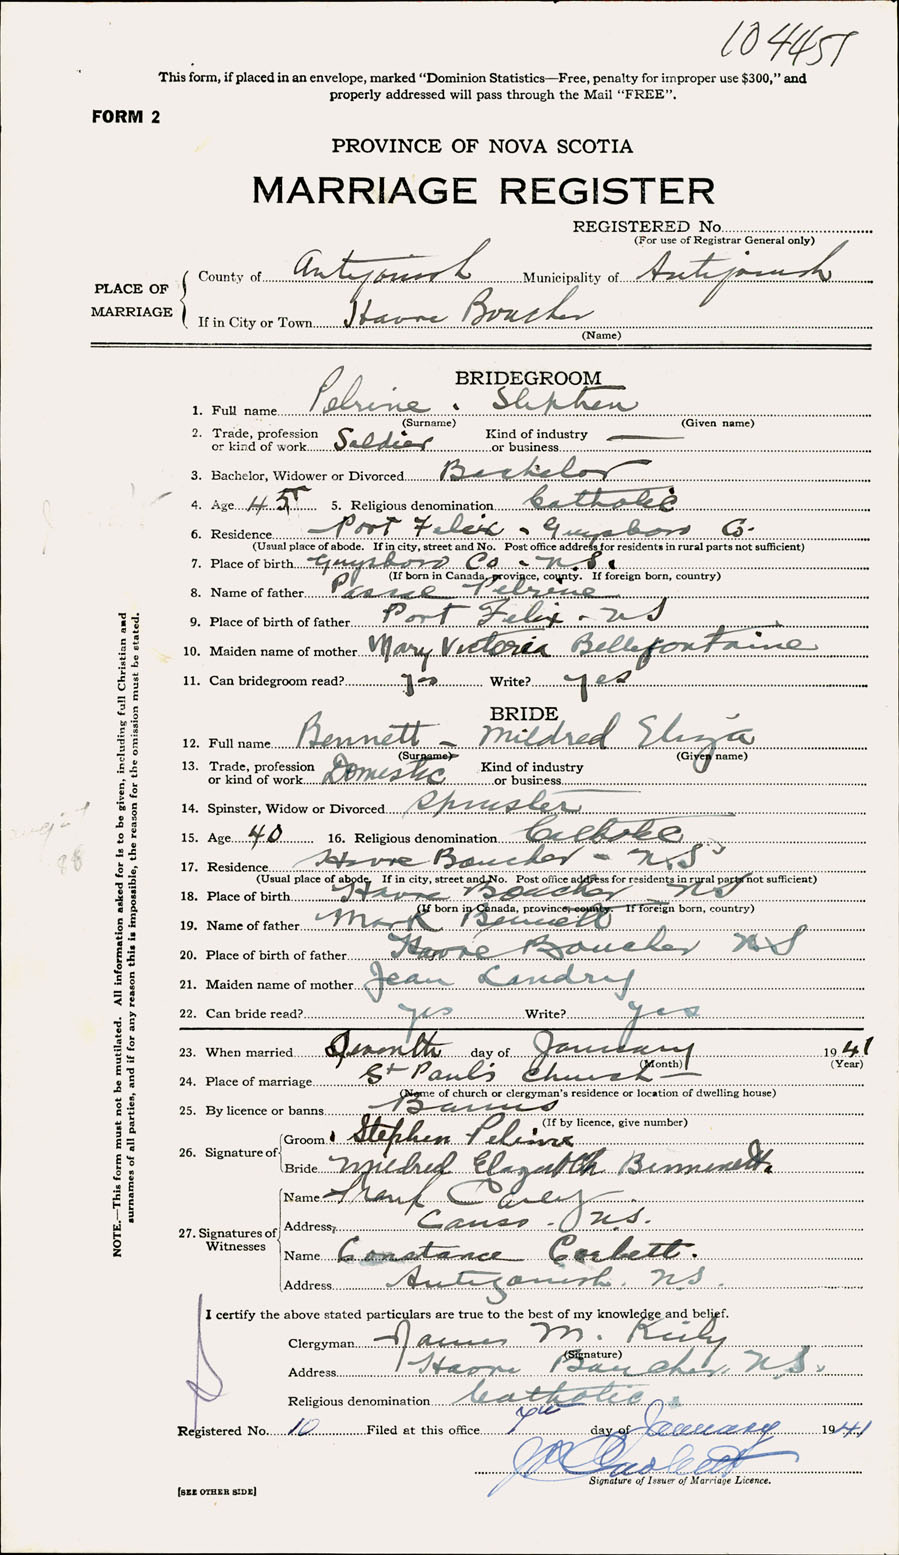 104451
This form, if placed in an envelope, marked “Dominion Statistics—Free, penalty for improper use $300,” and
properly addressed will pass through the Mail “FREE”.
FORM 2
PROVINCE OF NOVA SCOTIA
MARRIAGE REGISTER
REGISTERED No.
(For use of Registrar General only)
PLACE OF MARRIAGE
County of Antigonish Municipality of Antigonish
If in City or Town Havre Boucher
(Name)
BRIDEGROOM
1. Full name Pelrine. Stephen
(Surname) (Given name)
2. Trade, profession or kind of work Soldier Kind of industry or business —
3. Bachelor, Widower or Divorced Bachelor
4. Age 45 5. Religious denomination Catholic
6. Residence Port Felix - Guysboro Co.
(Usual place of abode. If in city, street and No. Post office address for residents in rural parts not sufficient)
7. Place of birth Guysboro Co - N.S.
(If born in Canada, province, county. If foreign born, country)
8. Name of father Pelrine
9. Place of birth of father Port Felix - NS
10. Maiden name of mother Mary Victoria Bellefontaine
11. Can bridegroom read? yes Write? yes
BRIDE
12. Full name Bennett - Mildred Eliza
(Surname) (Given name)
13. Trade, profession or kind of work Domestic Kind of industry or business
14. Spinster, Widow or Divorced Spinster
15. Age 40 16. Religious denomination Catholic
17. Residence Havre Boucher - N.S
(Usual place of abode. If in city, street and No. Post office address for residents in rural parts not sufficient)
18. Place of birth Havre Boucher NS
(If born in Canada, province, county. If foreign born, country)
19. Name of father Mark Bennett
20. Place of birth of father Havre Boucher NS
21. Maiden name of mother Jean Landry
22. Can bride read? yes Write? yes
23. When married Seventh day of January 1941
(Month) (Year)
24. Place of marriage St Paul's Church —
(Name of church or clergyman's residence or location of dwelling house)
25. By licence or banns Banns
(If by licence, give number)
26. Signature of
Groom Stephen Pelrine
Bride Mildred
27. Signatures of Witnesses
Name Frank
Address Canso. N.S.
Name Constance Corbett.
Address Antigonish. N.S.
I certify the above stated particulars are true to the best of my knowledge and belief.
Clergyman James M. Kiely
(Signature)
Address Havre Boucher, N.S.
Religious denomination Catholic.
Registered No. 10 Filed at this office 7th day of January 1941
Signature of Issuer of Marriage Licence.
[SEE OTHER SIDE]
NOTE.—This form must not be mutilated. All information asked for is to be given, including full Christian and
surnames of all parties, and if for any reason this is impossible, the reason for the omission must be stated.